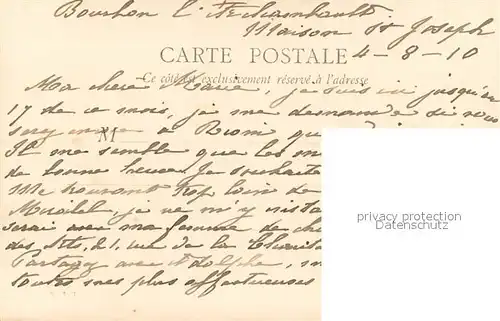 Bourbon l'Archambault
Maison St Joseph
4-8-10
CARTE POSTALE
Ce côté est exclusivement réservé à l'adresse
Ma chère Marie, je suis ici jusqu'au
17 de ce mois, je me demande si vous
serez M à Riom
Il me semble que les
de bonne heure. Je souhaite
Me trouvant trop loin de
je ne m'y
serai avec ma femme de
des 1. rue de la
Partagez avec Adolphe,
toutes mes plus affectueuses
privacy protection
AKPool.de